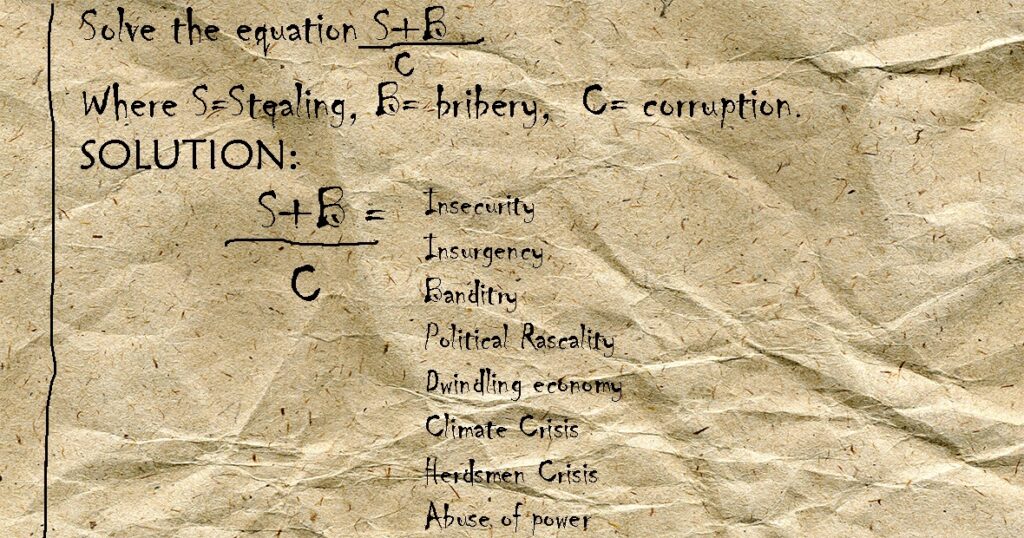 Solve the equation S+B
C
Where S=Stealing, B= bribery, C= corruption.
SOLUTION:
S+B = Insecurity
Insurgency
C
Banditry
Political Rascality
Dwindling economy
Climate Crisis
Herdsmen Crisis
Abuse of power